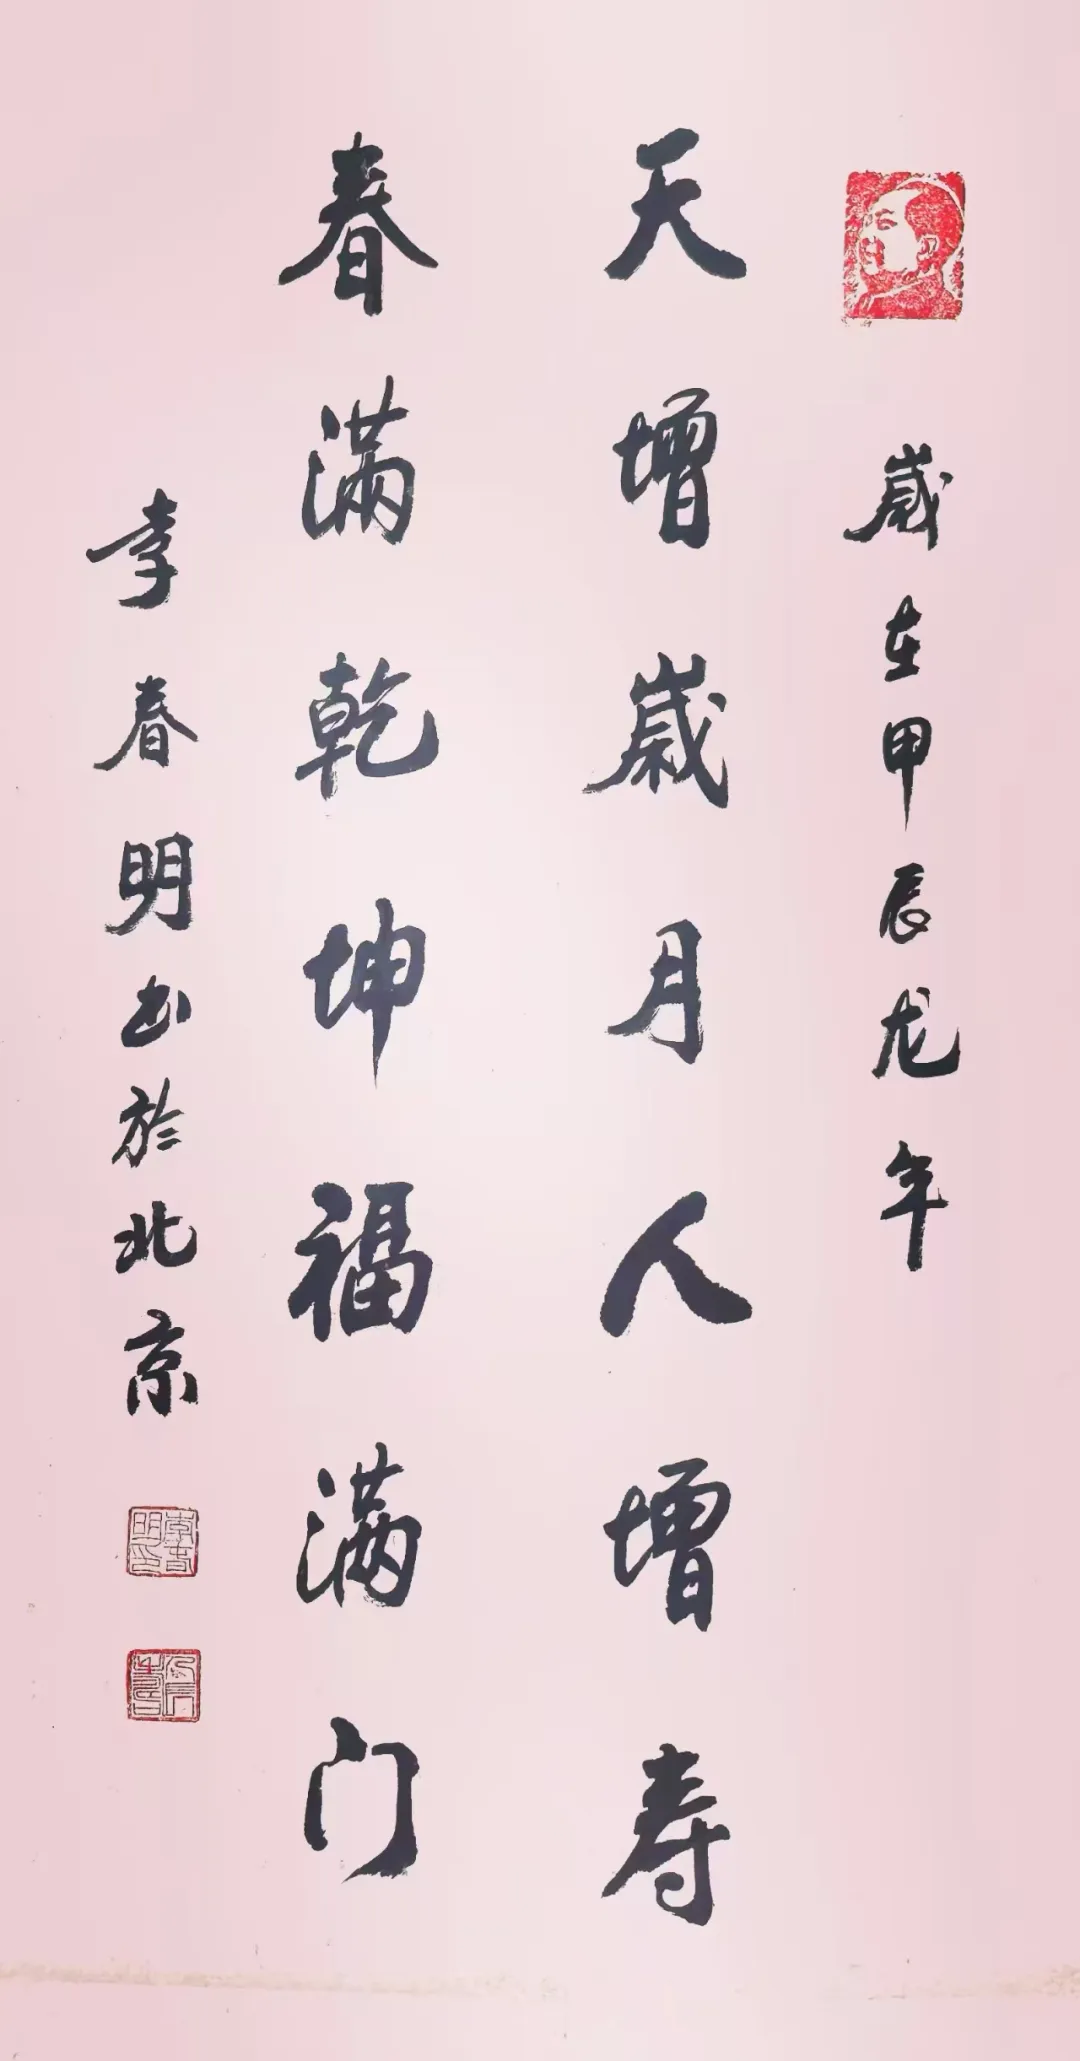 歲在甲辰龙年
天增歲月人增寿
春满乾坤福满门
李春明书於北京